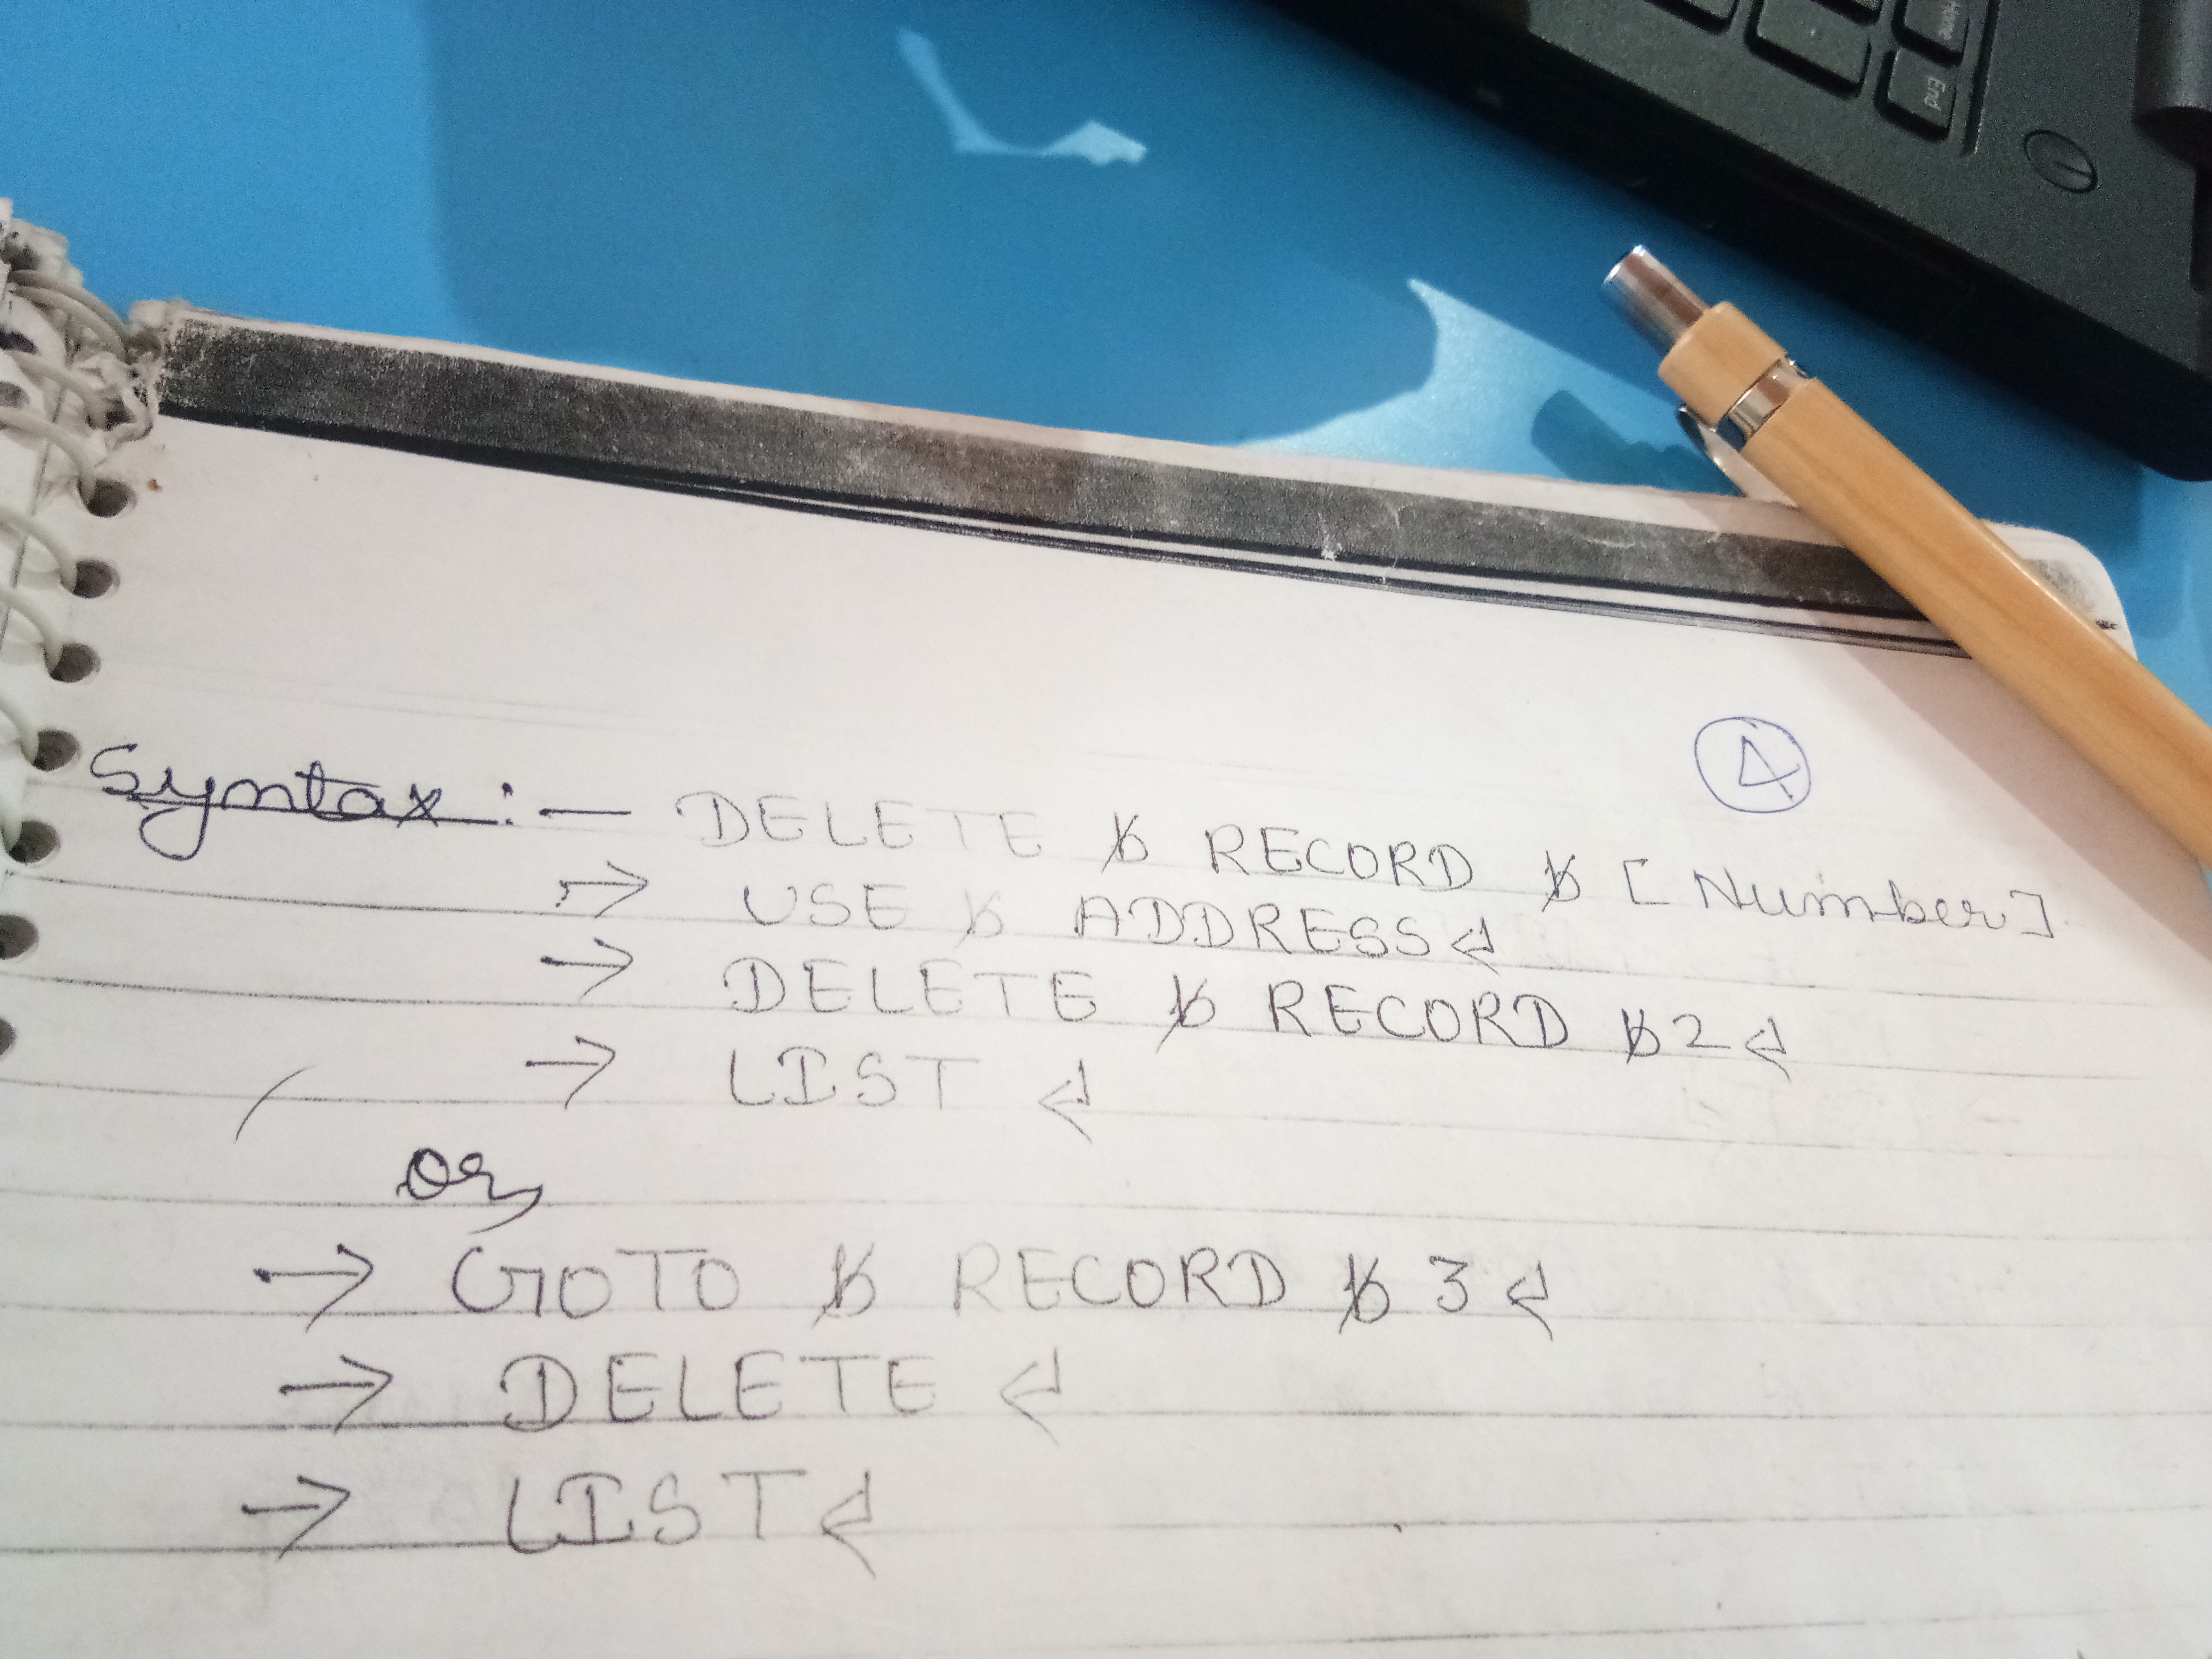 ④
Syntax :— DELETE ␢ RECORD ␢ [Number]
→ USE ␢ ADDRESS ↵
→ DELETE ␢ RECORD ␢ 2 ↵
→ LIST ↵
or,
→ GOTO ␢ RECORD ␢ 3 ↵
→ DELETE ↵
→ LIST ↵
Home
End